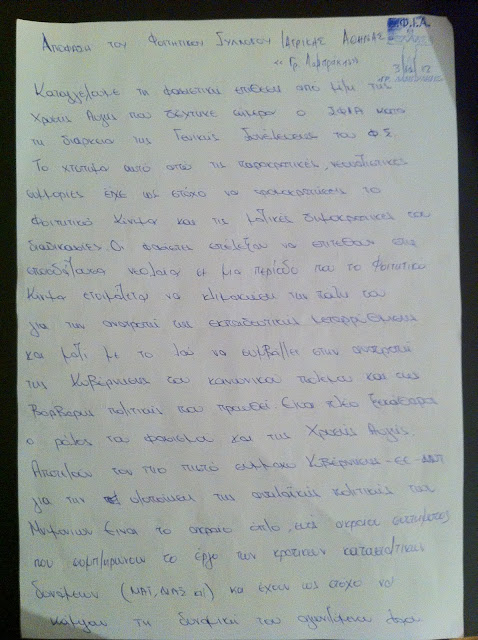 Απόφαση του Φοιτητικού Συλλόγου Ιατρικής Αθήνας Φ.Ι.Α.
« Γρ. Λαμπράκης»
3/12/12
Καταγγέλουμε τη φασιστική επίθεση από μέλη της
Χρυσής Αυγής που δέχτηκε σήμερα ο ΣΦΙΑ κατά
τη διάρκεια της Γενικής Συνέλευσης του Φ.Σ.
Το χτύπημα αυτό από τις παρακρατικές, νεοναζιστικές
συμμορίες έχει ως στόχο να τρομοκρατήσει το
Φοιτητικό Κίνημα και τις μαζικές δημοκρατικές του
διαδικασίες. Οι φασίστες επέλεξαν να επιτεθούν στη
σπουδάζουσα νεολαία σε μια περίοδο που το Φοιτητικό
Κίνημα ετοιμάζεται να κλιμακώσει την πάλη του
για την ανατροπή της εκπαιδευτικής μεταρρύθμισης
και μαζί με το λαό να συμβάλλει στην ανατροπή
της Κυβέρνησης του κοινωνικού πολέμου και της
βάρβαρης πολιτικής που προωθεί. Είναι πλέον ξεκάθαρος
ο ρόλος του φασισμού και της Χρυσής Αυγής.
Αποτελούν τον πιο πιστό σύμμαχο Κυβέρνησης-ΕΕ-ΔΝΤ
για την υλοποίηση της αντιλαϊκής πολιτικής της
Μνημονίων. Είναι το ακραίο όπλο, ενός ακραίου συστήματος
που συμπληρώνουν το έργο των κρατικών κατασταλτικών
δυνάμεων (ΜΑΤ, ΔΙΑΣ κα) και έχουν ως στόχο να
κάμψουν τη δυναμική του αγωνιζόμενου λαού